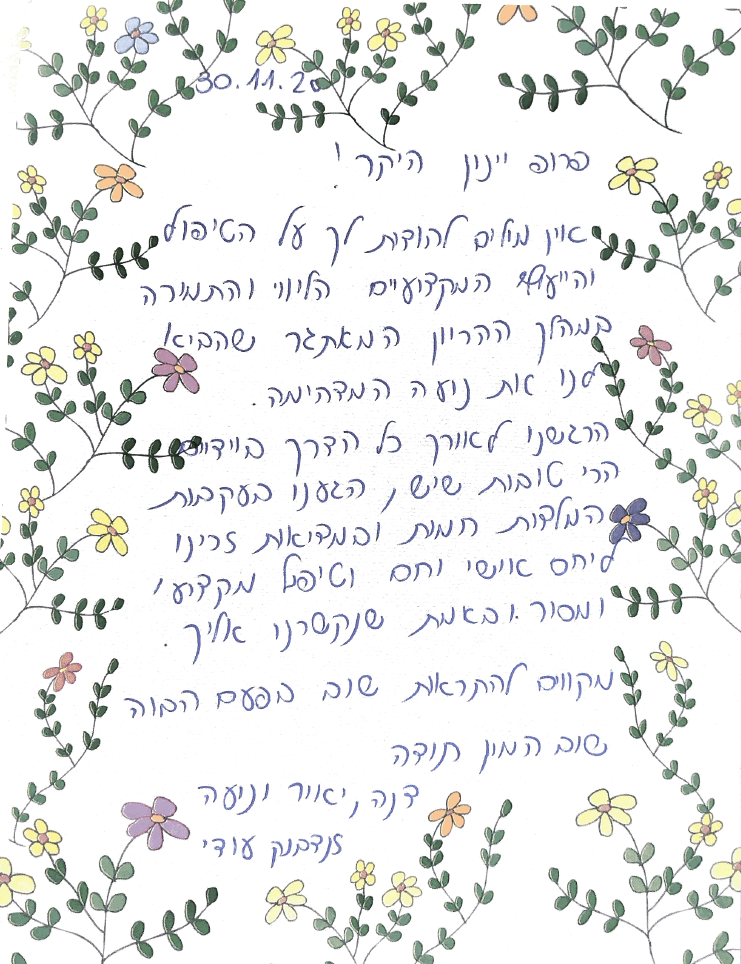 30.11.20
פרופ יינון היקר!
אין מילים להודות לך על הטיפול
והייעוץ המקצועיים הליווי והתמיכה
במהלך ההריון המאתגר שהביא
לנו את נועה המדהימה.
הרגשנו לאורך כל הדרך בידיים
הכי טובות שיש, הגענו בעקבות
המלצות חמות ובמציאות זכינו
ליחס אישי וחם וטיפול מקצועי
ומסור. ובאמת שנקשרנו אליך.
מקווים להתראות שוב בפעם הבאה
שוב המון תודה
דנה, יאיר ונועה